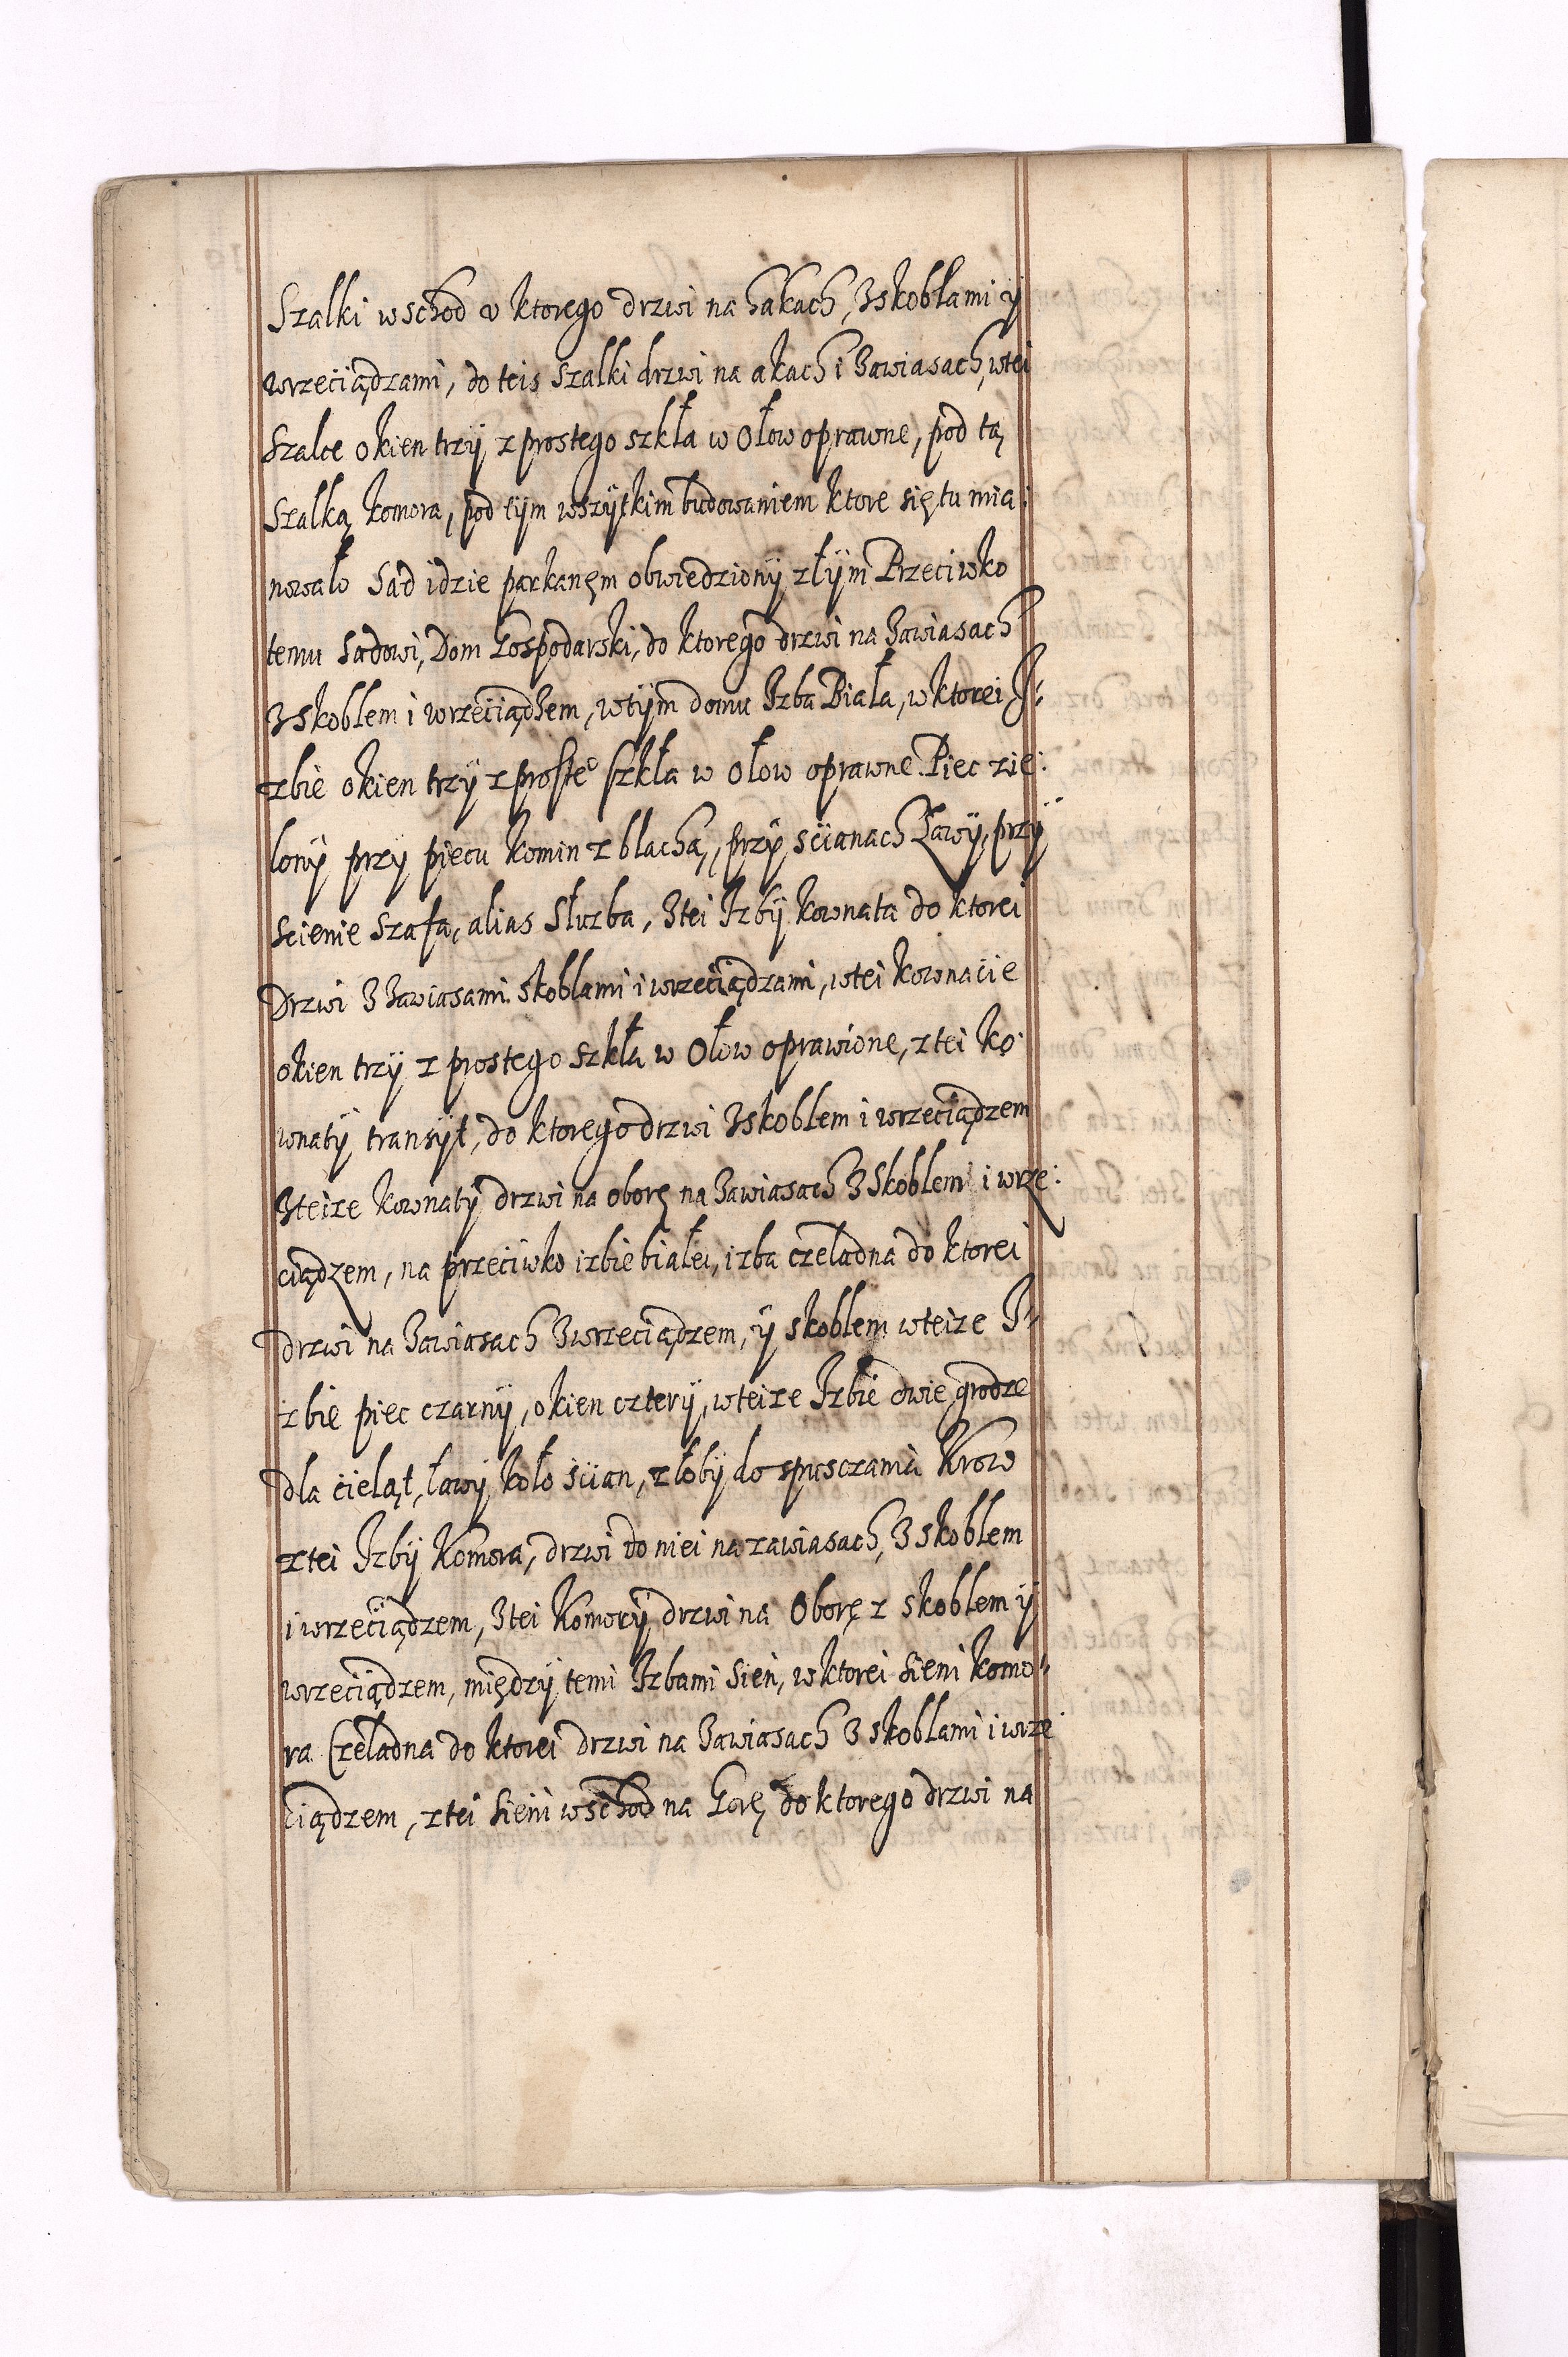 Szalki wschod v ktorego drzwi na hakach, Zskoblami ÿ
wrzeciądzami, do teis Szalki drzwi na akach i Zawiasach, wtei
Szalce okien trzÿ z prostego szkła w Ołow oprawne, pod tą
Szalką komora, pod tÿm wszÿtkim budowaniem ktore się tu mia:
nowało Sad idzie parkanęm obwiedzionÿ złÿm Przeciwko
temu Sadowi, Dom Gospodarski, do ktorego drzwi na Zawiasach
Z skoblem i wrzeciądzem, wtÿm domu Izba Biała, w ktorei I:
zbie okien trzÿ z proste° szkła w ołow oprawne. Piec zie:
lonÿ przy piecu komin z blachą, przÿ scianach Ławÿ, przÿ
scienie Szafa, alias Słuzba, Ztei Izbÿ kownata do ktorei
Drzwi Z Zawiasami skoblami i wrzeciądzami, wtei kownacie
okien trzÿ z prostego szkła w Ołow oprawione, z tei ko:
wnatÿ transÿt, do ktorego drzwi Zskoblem i wrzeciądzem
Zteize kownatÿ drzwi na oborę na Zawiasach Z Skoblem i wrze:
ciądzem, na przeciwko izbie białei, izba czeladna do ktorei
drzwi na Zawiasach Zwrzeciądzem, ÿ skoblem wteize I:
izbie piec czarnÿ, okien czterÿ, wteize Izbie dwie grodze
dla cieląt, ławÿ koło scian, złobÿ do spusczania Krow
z tei Izbÿ Komora, drzwi do niei na zawiasach, Z skoblem
i wrzeciądzem, Ztei Komorÿ drzwi na Oborę z skoblem ÿ
wrzeciądzem, międzÿ temi Izbami Sień, w ktorei sieni komo:
ra Czeladna do ktorei drzwi na Zawiasach Z skoblami i wrze
ciądzem, z tei sieni wschod na Gorę do ktorego drzwi na